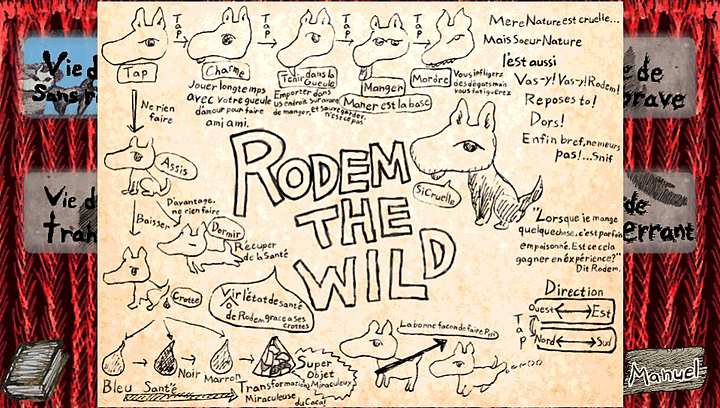 Tap
Tap
Tap
Tap
Tap
Charme
Tenir dans la
Gueule
Manger
Mordre
Jouer longtemps
avec votre gueule
d'amour pour faire
ami ami.
Emporter dans
un endroit sur avant
de manger, et sauvegarder,
n'est ce pas
Maner est la base
Vous infligez
des dégats mais
vous fatiguerez
Mere Nature est cruelle...
Mais Soeur Nature
l'est aussi
Vas-y! Vas-y! Rodem!
Reposes to!
Dors!
Enfin bref, ne meurs
pas!...Snif
Vie d
Sans
Vie d
tran
e de
brave
de
errant
Ne rien
faire
Assis
Davantage,
ne rien faire
Baisser
Dormir
Récuper
de la Santé
Crotte
Vir l'état de santé
de Rodem grace a ses
crottes
RODEM
THE
WILD
Si Cruelle
"Lorsque je mange
quelque chose, c'est parfois
empaisonné. Est ce cela
gagner en éxpérience?"
Dit Rodem.
Direction
Ouest
Est
Tap
Nord
Sud
La bonne facon de faire
Bleu
Santé
Noir
Marron
Transformation
Miraculeuse
Super
Objet
Miraculeux
du Caca!
Manuel